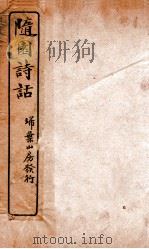 隨園詩話
埽葉山房發行